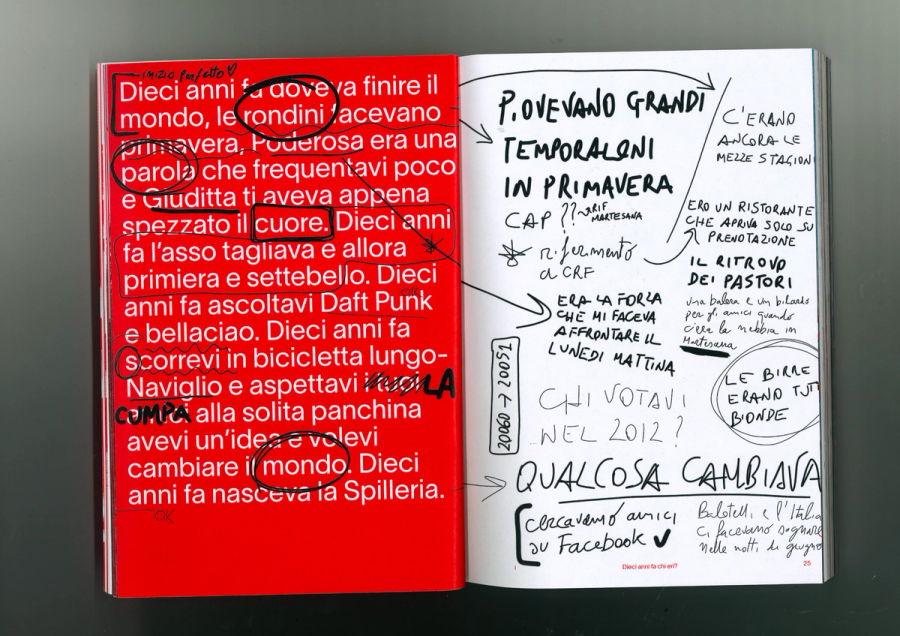 inizio perfetto
Dieci anni fa doveva finire il
mondo, le rondini facevano
primavera, Poderosa era una
parola che frequentavi poco
e Giuditta ti aveva appena
spezzato il cuore. Dieci anni
fa l'asso tagliava e allora
primiera e settebello. Dieci
OK
anni fa ascoltavi Daft Punk
e bellaciao. Dieci anni fa
scorrevi in bicicletta lungo-
Naviglio e aspettavi LA
CUMPA alla solita panchina
avevi un'idea e volevi
cambiare il mondo. Dieci
anni fa nasceva la Spilleria.
OK
PIOVEVANO GRANDI
TEMPORALONI
IN PRIMAVERA
CAP ?? RIF
MARTESANA
riferimento
a CRF
C'ERANO
ANCORA LE
MEZZE STAGIONI
ERO UN RISTORANTE
CHE APRIVA SOLO SU
PRENOTAZIONE
IL RITROVO
DEI PASTORI
una balera e un biliardo
per gli amici quando
c'era la nebbia in
Martesana
ERA LA FORZA
CHE MI FACEVA
AFFRONTARE IL
LUNEDI MATTINA
20060 → 20051
CHI VOTAVI
NEL 2012?
LE BIRRE
ERANO TUTT
BIONDE
QUALCOSA CAMBIAVA
cercavamo amici
su Facebook ✓
Balotelli e l'Italia
ci facevano sognare
nelle notti di giugno
Dieci anni fa chi eri?
25